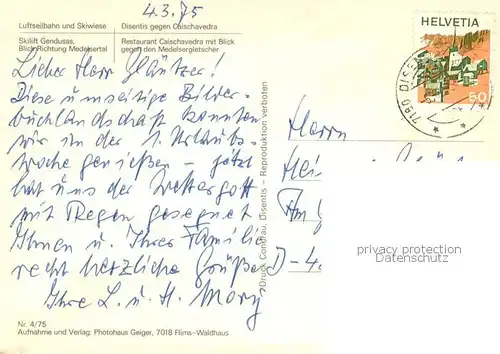 4.3.75
Luftseilbahn und Skiwiese
Disentis gegen Caischavedra
Skilift Gendusas,
Blick Richtung Medelsertal
Restaurant Caischavedra mit Blick
gegen den Medelsergletscher.
HELVETIA
50
7180 DISEN
Lieber Herr
Diese umseitige Bilder-
buchlandschaft konnten
wir in der 1. Urlaubs-
woche genießen – jetzt
hat uns der Wettergott
mit Regen gesegnet
Ihnen u. Ihrer Familie
recht herzliche Grüße
Ihre L. u. H. Mory
Druck Condrau, Disentis – Reproduktion verboten
Herrn
Hei
Am
D-4
privacy protection
Datenschutz
Nr. 4/75
Aufnahme und Verlag: Photohaus Geiger, 7018 Flims-Waldhaus